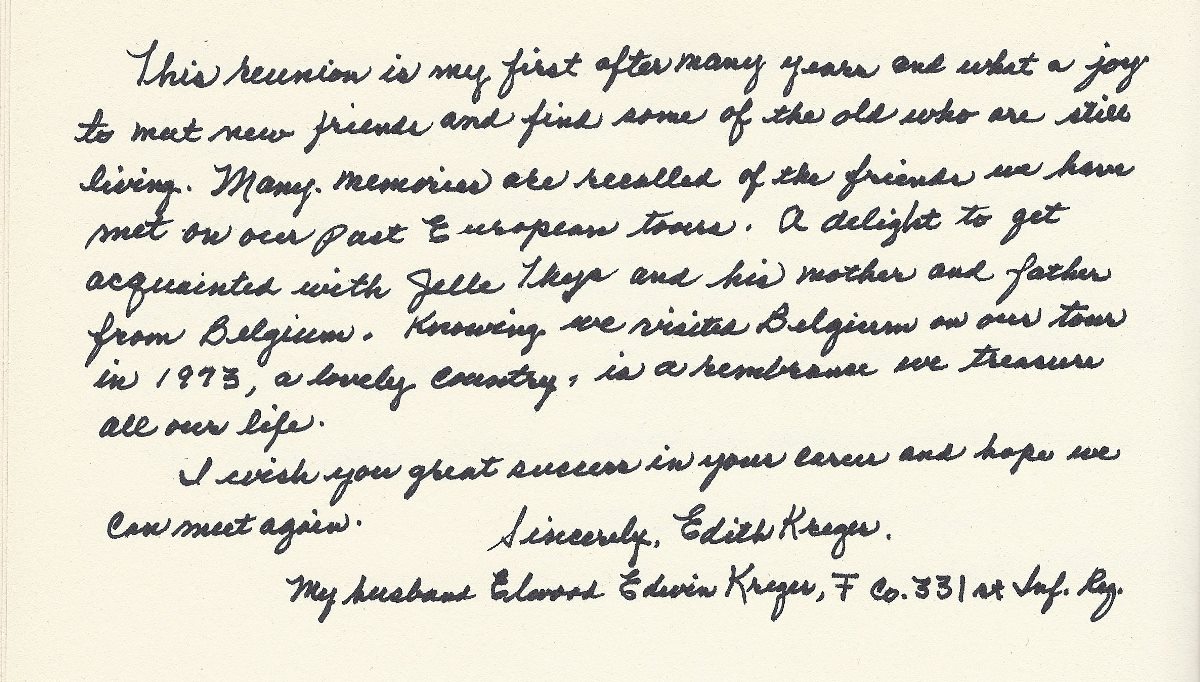 This reunion is my first after many years and what a joy
to meet new friends and find some of the old who are still
living. Many memories are recalled of the friends we have
met on our past European tours. A delight to get
acquainted with Jelle Thys and his mother and father
from Belgium. Knowing we visited Belgium on our tour
in 1973, a lovely country, is a rembrance we treasure
all our life.
I wish you great success in your career and hope we
can meet again. Sincerely, Edith Kreger.
My husband Elwood Edwin Kreger, F Co. 331 st Inf. Reg.